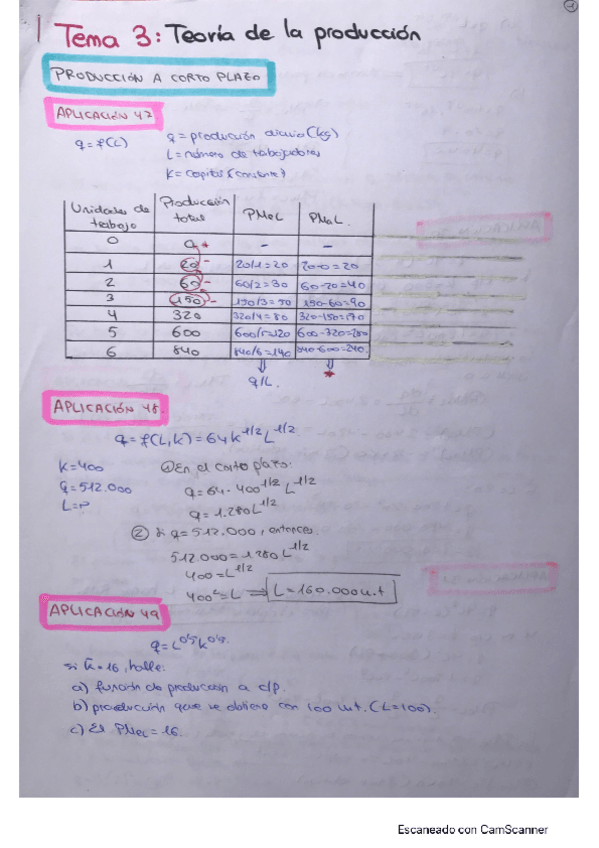 1
Tema 3: Teoría de la producción
PRODUCCIÓN A CORTO PLAZO
APLICACIÓN 47
q=f(L)
q = producción diaria (kg)
L = número de trabajadores
K = capital (constante)
Unidades de trabajo | Producción total | PMeL | PMaL
0 | 0 | - | -
1 | 20 | 20/1=20 | 20-0=20
2 | 60 | 60/2=30 | 60-20=40
3 | 150 | 150/3=50 | 150-60=90
4 | 320 | 320/4=80 | 320-150=170
5 | 600 | 600/5=120 | 600-320=280
6 | 840 | 840/6=140 | 840-600=240
⇓ ⇓
q/L. *
APLICACIÓN 48.
q=f(L,K)=64K^1/2 L^1/2
K=400
q=512.000
L=?
① En el corto plazo:
q=64·400^1/2 L^1/2
q=1.280L^1/2
② Si q=512.000, entonces
512.000=1.280L^1/2
400=L^1/2
400²=L ⇒ L=160.000u.t
APLICACIÓN 49
q=L^0'5 K^0'5.
si K̄=16, halle:
a) función de producción a c/p.
b) producción que se obtiene con 100 u.t. (L=100).
c) El PMeL=16.
Escaneado con CamScanner